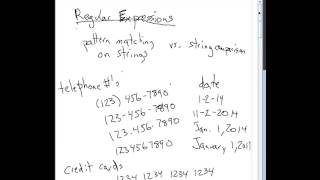 Regular Expressions
pattern matching
on strings
vs. string comparison
telephone #'s
(123) 456-7890
123-456-7890
123.456.7890
1234567890
date
1-2-14
11-2-2014
Jan. 1, 2014
January 1, 201
credit cards
1234 1234 1234 1234